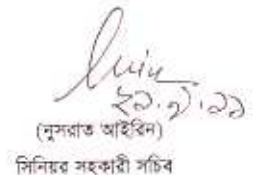 ২৯.৭.১১
(নুসরাত আইরিন)
সিনিয়র সহকারী সচিব